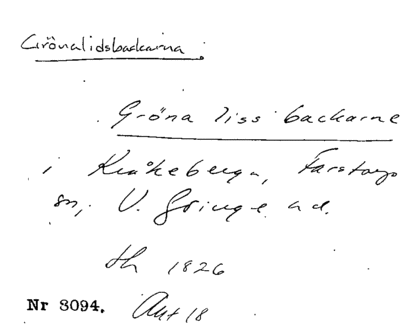 Grönalidsbackarna.
Gröna liss backarne
i Kråkeberga, Farstorps
sn, V. Göinge hd.
th 1826
Nr 8094. Akt 18